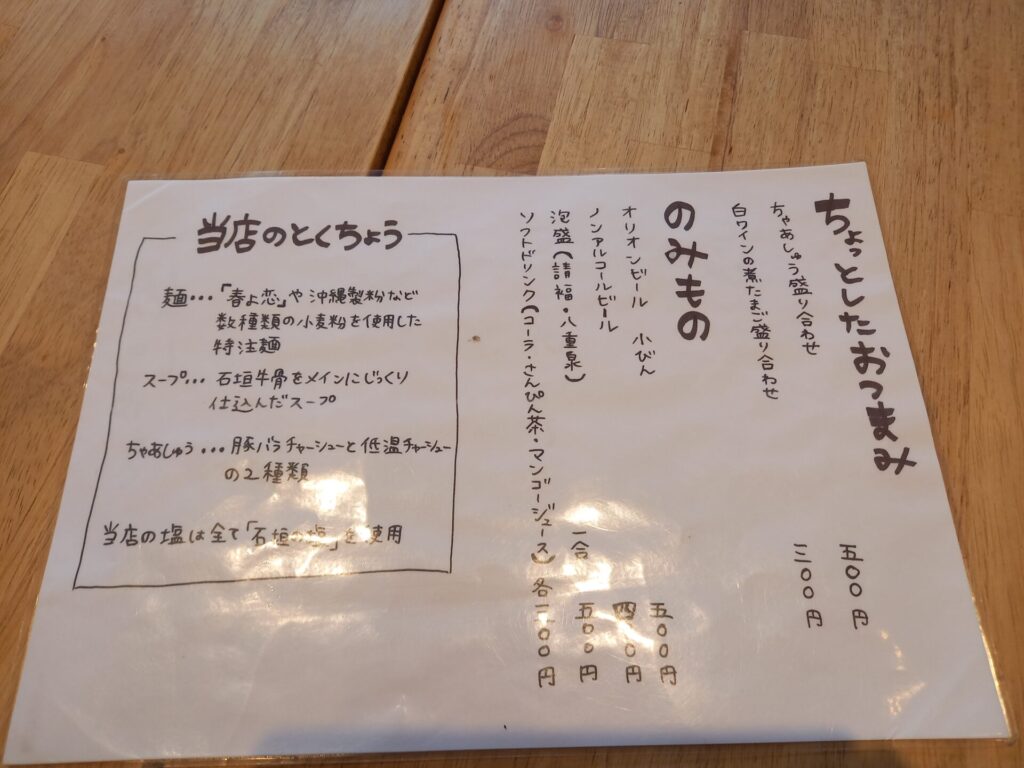 ちょっとしたおつまみ
ちゃあしゅう盛り合わせ 五〇〇円
白ワインの煮たまご盛り合わせ 三〇〇円
のみもの
オリオンビール 小びん 五〇〇円
ノンアルコールビール 四〇〇円
泡盛(請福・八重泉) 一合 五〇〇円
ソフトドリンク(コーラ・さんぴん茶・マンゴージュース) 各二〇〇円
当店のとくちょう
麺…「春よ恋」や沖縄製粉など
数種類の小麦粉を使用した
特注麺
スープ… 石垣牛骨をメインにじっくり
仕込んだスープ
ちゃあしゅう…豚バラチャーシューと低温チャーシュー
の2種類
当店の塩は全て「石垣の塩」を使用